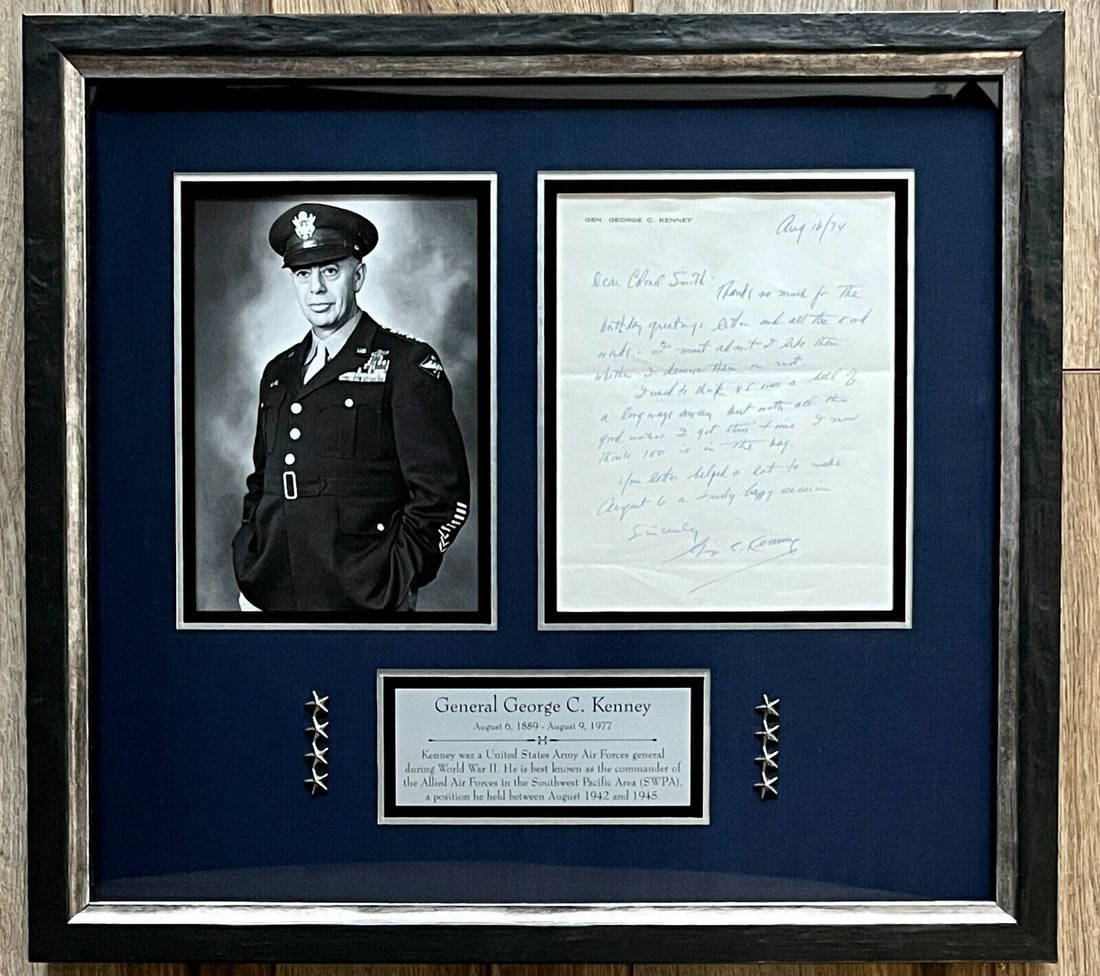 GEN. GEORGE C. KENNEY
Aug 16/74
Dear Colonel Smith:
Thanks so much for the
birthday greetings letter and all the kind
words. I must admit I like them
whether I deserve them or not.
I used to think 85 was a hell of
a long ways away but with all the
good wishes I got this time I now
think 100 is in the bag.
Your letter helped a lot to make
August 6 a truly happy occasion
Sincerely
George C. Kenney
General George C. Kenney
August 6, 1889 - August 9, 1977
Kenney was a United States Army Air Forces general
during World War II. He is best known as the commander of
the Allied Air Forces in the Southwest Pacific Area (SWPA),
a position he held between August 1942 and 1945.